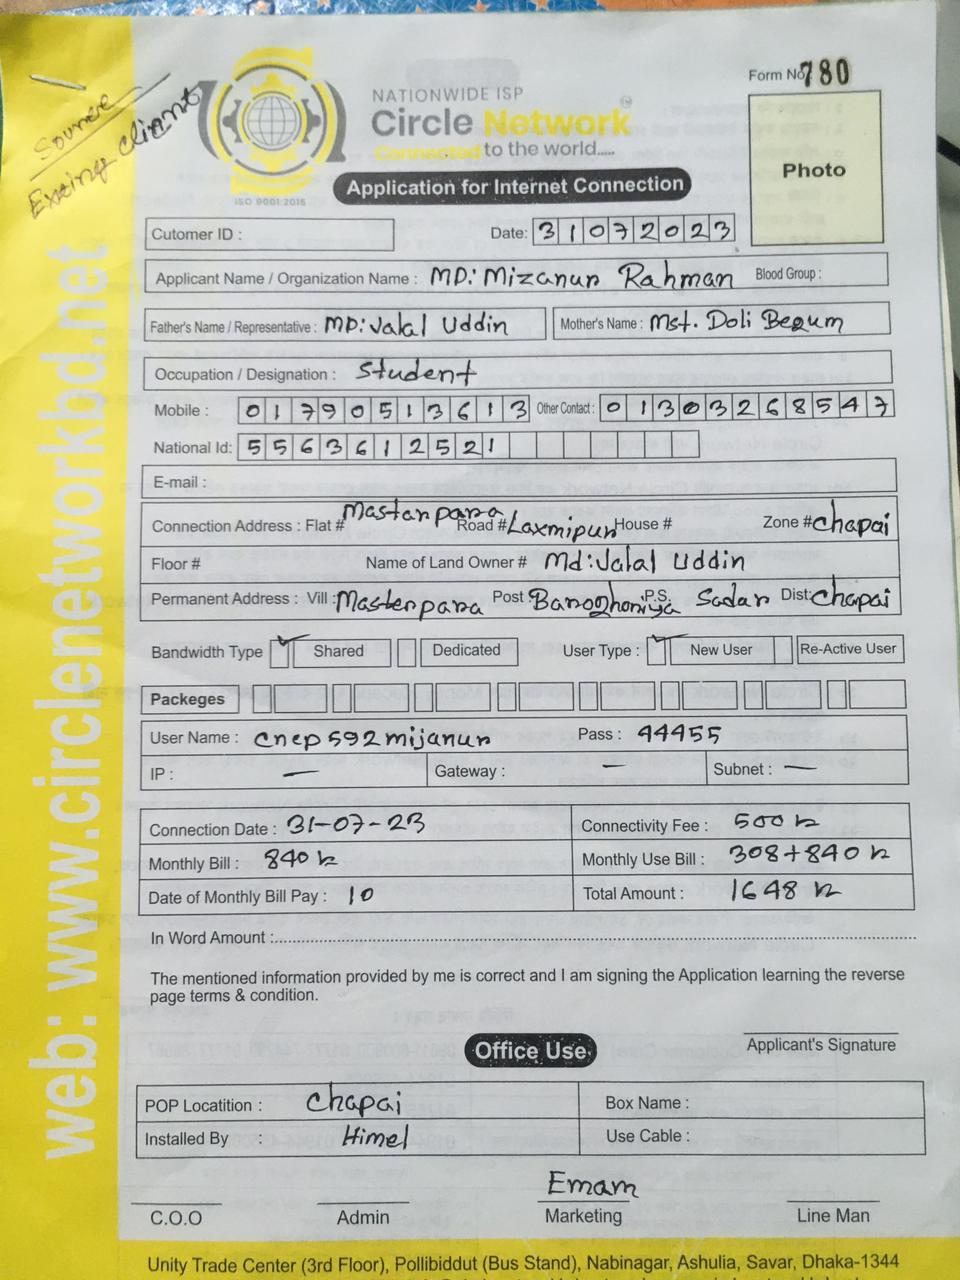 Source
Exsting client
Form No 780
NATIONWIDE ISP
Circle Network
Connected to the world.....
ISO 9001:2015
Photo
Application for Internet Connection
Cutomer ID :
Date: 31072023
Applicant Name / Organization Name : MD: Mizanur Rahman Blood Group :
Father's Name / Representative : MD: Jalal Uddin Mother's Name : Mst. Doli Begum
Occupation / Designation : Student
Mobile : 01790513613 Other Contact : 01303268547
National Id: 5563612521
E-mail :
Connection Address : Flat # Mastarpara Road # Laxmipur House # Zone # Chapai
Floor # Name of Land Owner # Md: Jalal Uddin
Permanent Address : Vill : Masterpara Post : Baroghoriya P.S. Sadar Dist: Chapai
Bandwidth Type Shared Dedicated User Type : New User Re-Active User
Packeges
User Name : cnep592mijanur Pass : 44455
IP : — Gateway : — Subnet : —
Connection Date : 31-07-23 Connectivity Fee : 500
Monthly Bill : 840 Monthly Use Bill : 308+840
Date of Monthly Bill Pay : 10 Total Amount : 1648
In Word Amount :
The mentioned information provided by me is correct and I am signing the Application learning the reverse
page terms & condition.
Applicant's Signature
Office Use
POP Locatition : Chapai Box Name :
Installed By : Himel Use Cable :
Emam
C.O.O Admin Marketing Line Man
Unity Trade Center (3rd Floor), Pollibiddut (Bus Stand), Nabinagar, Ashulia, Savar, Dhaka-1344
web: www.circlenetworkbd.net